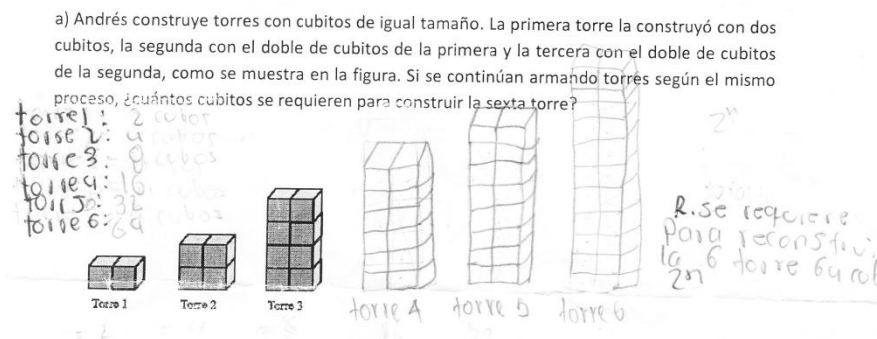 a) Andrés construye torres con cubitos de igual tamaño. La primera torre la construyó con dos
cubitos, la segunda con el doble de cubitos de la primera y la tercera con el doble de cubitos
de la segunda, como se muestra en la figura. Si se continúan armando torres según el mismo
proceso, ¿cuántos cubitos se requieren para construir la sexta torre?
torre1: 2 cubos
torre 2: 4 cubos
torre3: 8 cubos
torre4: 16 cubos
torre 5: 32
torre 6: 64 cubos
2ⁿ
R. se requiere
Para reconstrui
la 6 torre 64 cub
2n
Torre 1
Torre 2
Torre 3
torre 4
torre 5
torre 6
= 2